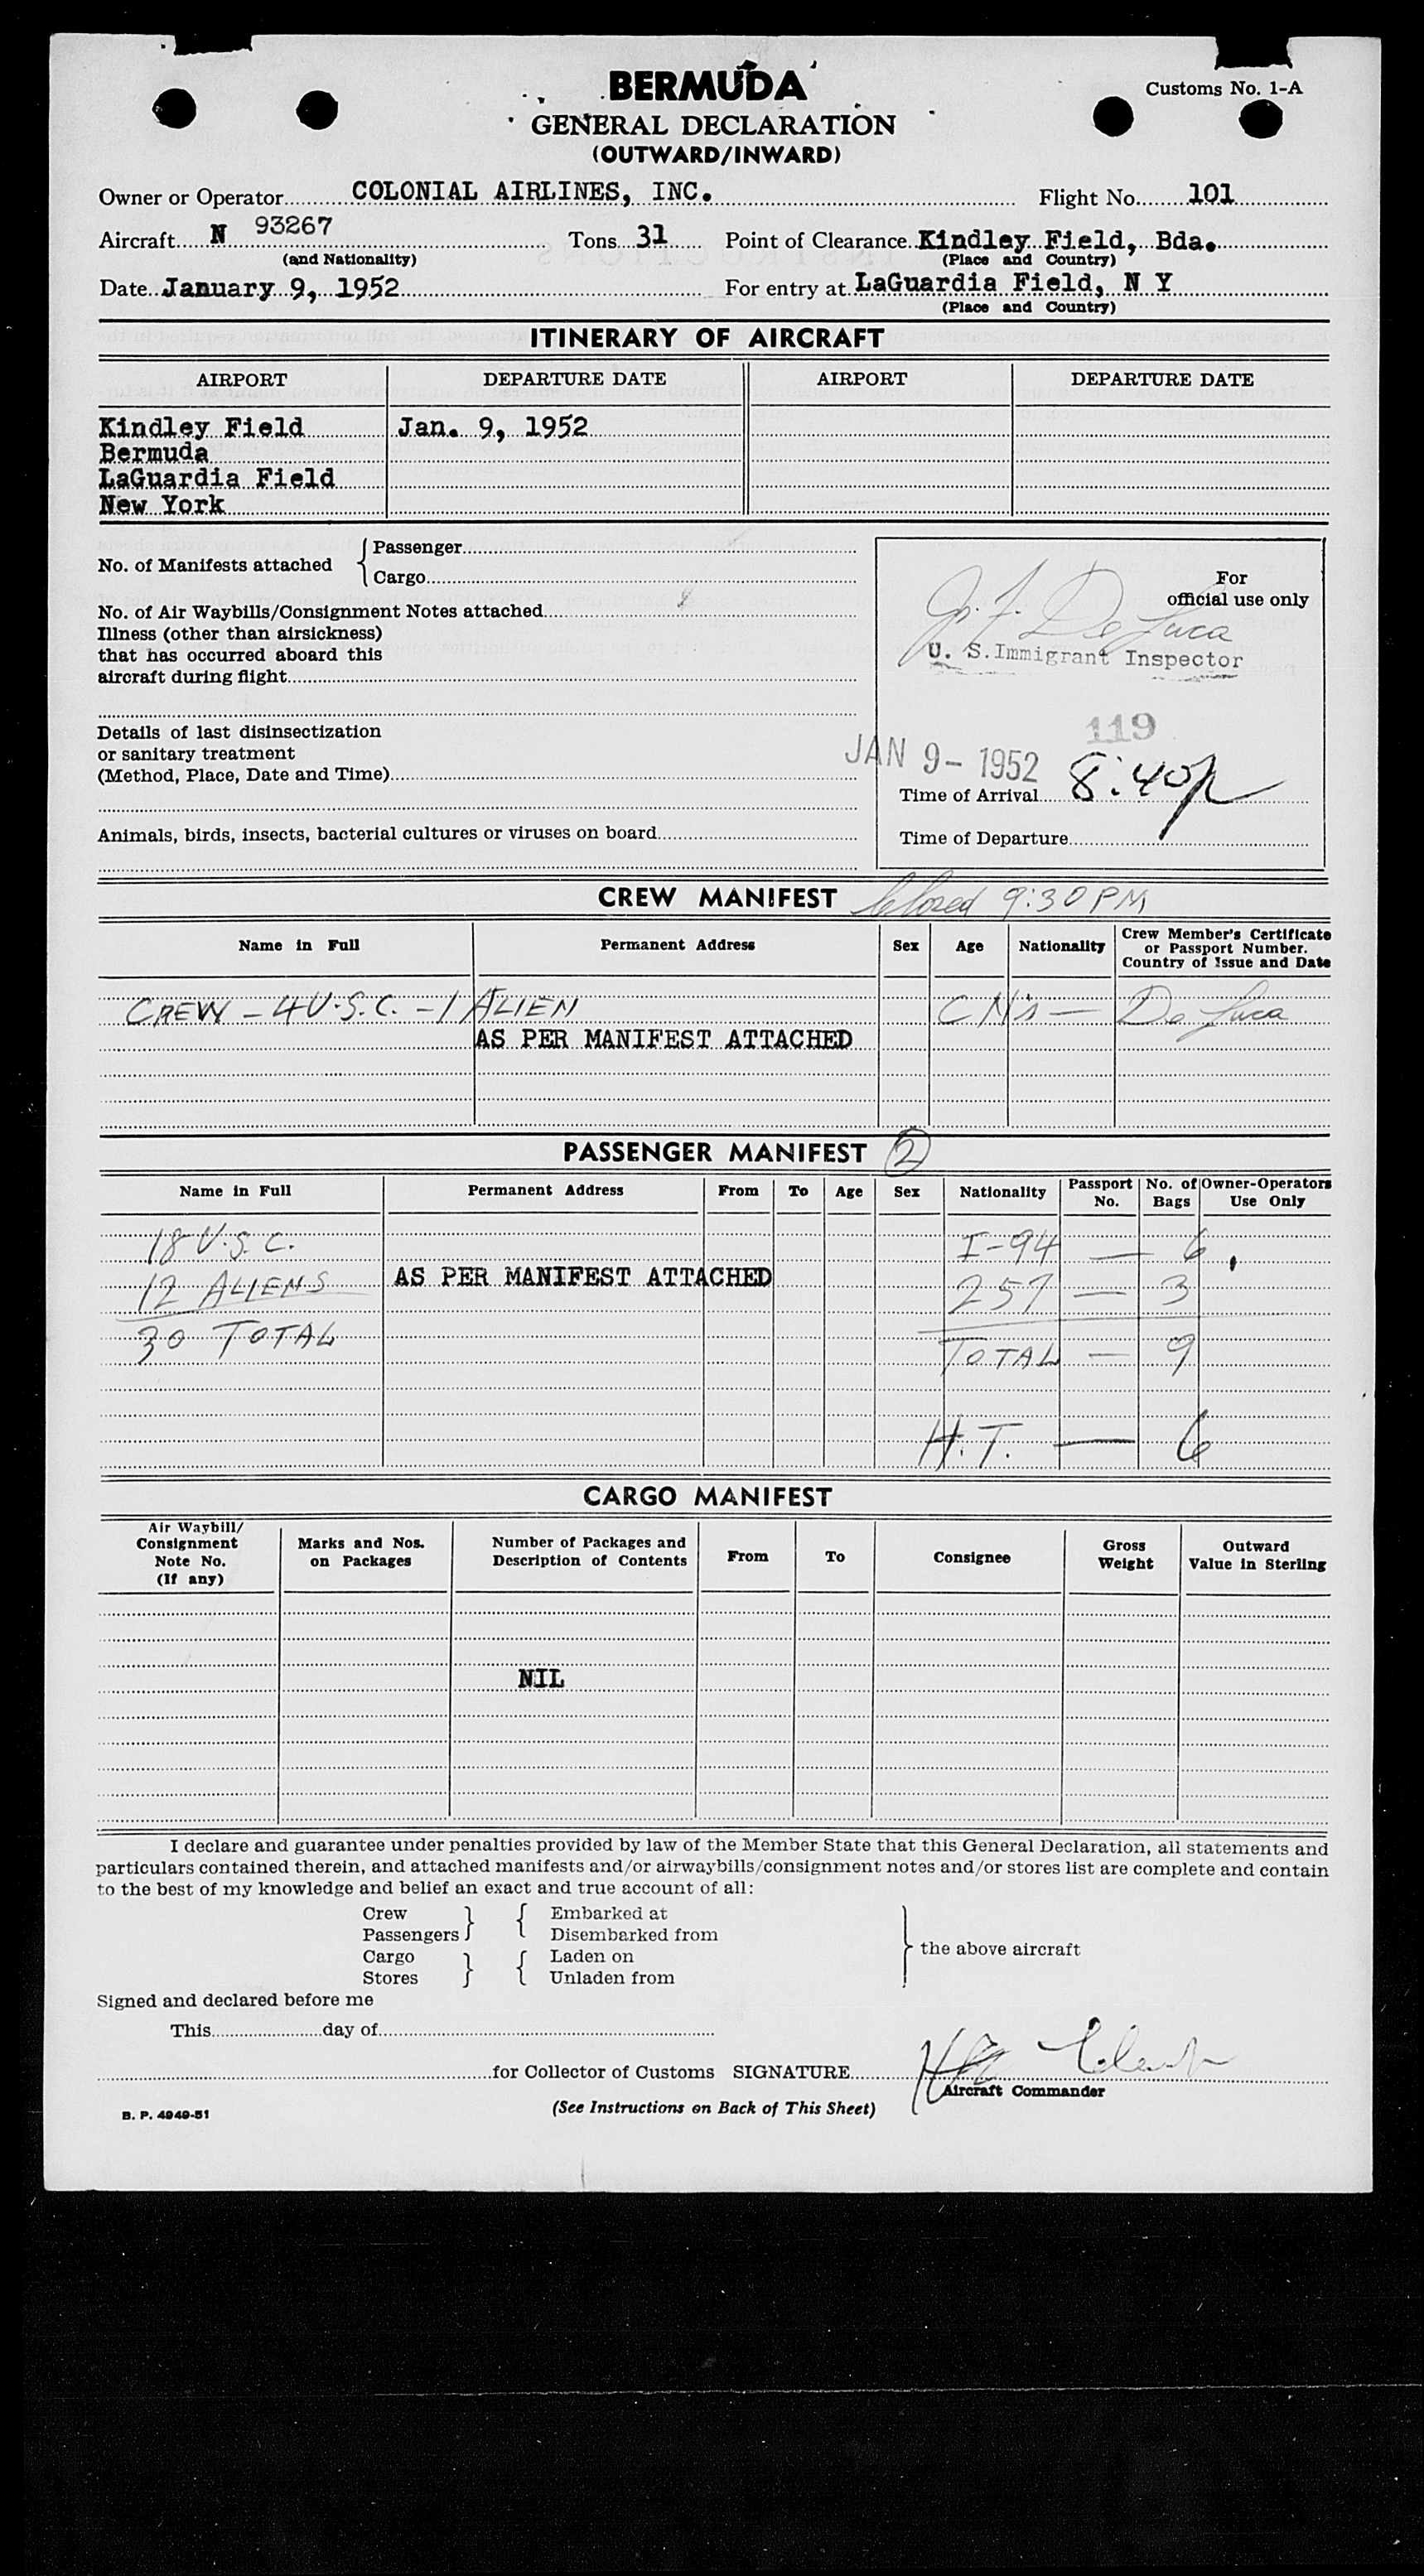 BERMUDA
Customs No. 1-A
GENERAL DECLARATION
(OUTWARD/INWARD)
Owner or Operator COLONIAL AIRLINES, INC. Flight No. 101
Aircraft N 93267 Tons 31 Point of Clearance Kindley Field, Bda.
(and Nationality) (Place and Country)
Date January 9, 1952 For entry at LaGuardia Field, N Y
(Place and Country)
ITINERARY OF AIRCRAFT
AIRPORT DEPARTURE DATE AIRPORT DEPARTURE DATE
Kindley Field Jan. 9, 1952
Bermuda
LaGuardia Field
New York
No. of Manifests attached { Passenger
Cargo
No. of Air Waybills/Consignment Notes attached
Illness (other than airsickness)
that has occurred aboard this
aircraft during flight
Details of last disinsectization
or sanitary treatment
(Method, Place, Date and Time)
Animals, birds, insects, bacterial cultures or viruses on board
For
official use only
J. F. De Luca
U. S. Immigrant Inspector
119
JAN 9- 1952
Time of Arrival 8:40p
Time of Departure
CREW MANIFEST Closed 9:30 PM
Name in Full Permanent Address Sex Age Nationality Crew Member's Certificate
or Passport Number.
Country of Issue and Date
CREW - 4 U.S.C. - 1 ALIEN CN's — De Luca
AS PER MANIFEST ATTACHED
PASSENGER MANIFEST 2
Name in Full Permanent Address From To Age Sex Nationality Passport No. No. of Bags Owner-Operators Use Only
18 U.S.C. I-94 — 6
12 ALIENS AS PER MANIFEST ATTACHED 257 — 3
30 TOTAL
TOTAL — 9
H.T. — 6
CARGO MANIFEST
Air Waybill/
Consignment
Note No.
(If any)
Marks and Nos.
on Packages
Number of Packages and
Description of Contents
From To Consignee
Gross
Weight
Outward
Value in Sterling
NIL
I declare and guarantee under penalties provided by law of the Member State that this General Declaration, all statements and
particulars contained therein, and attached manifests and/or airwaybills/consignment notes and/or stores list are complete and contain
to the best of my knowledge and belief an exact and true account of all:
Crew } { Embarked at
Passengers Disembarked from
Cargo } { Laden on
Stores Unladen from
} the above aircraft
Signed and declared before me
This day of
for Collector of Customs SIGNATURE
Aircraft Commander
B. P. 4949-51
(See Instructions on Back of This Sheet)